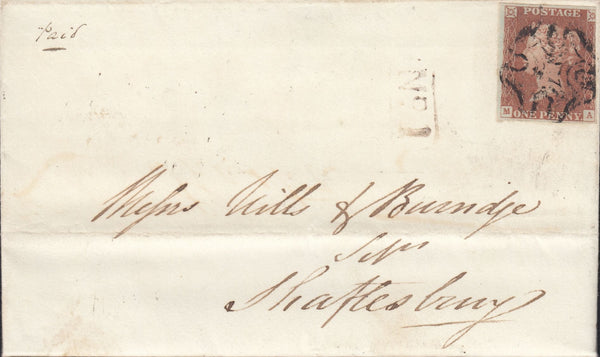 Paid
POSTAGE
M A
ONE PENNY
Messrs Hills & Burridge
Solrs
Shaftesbury